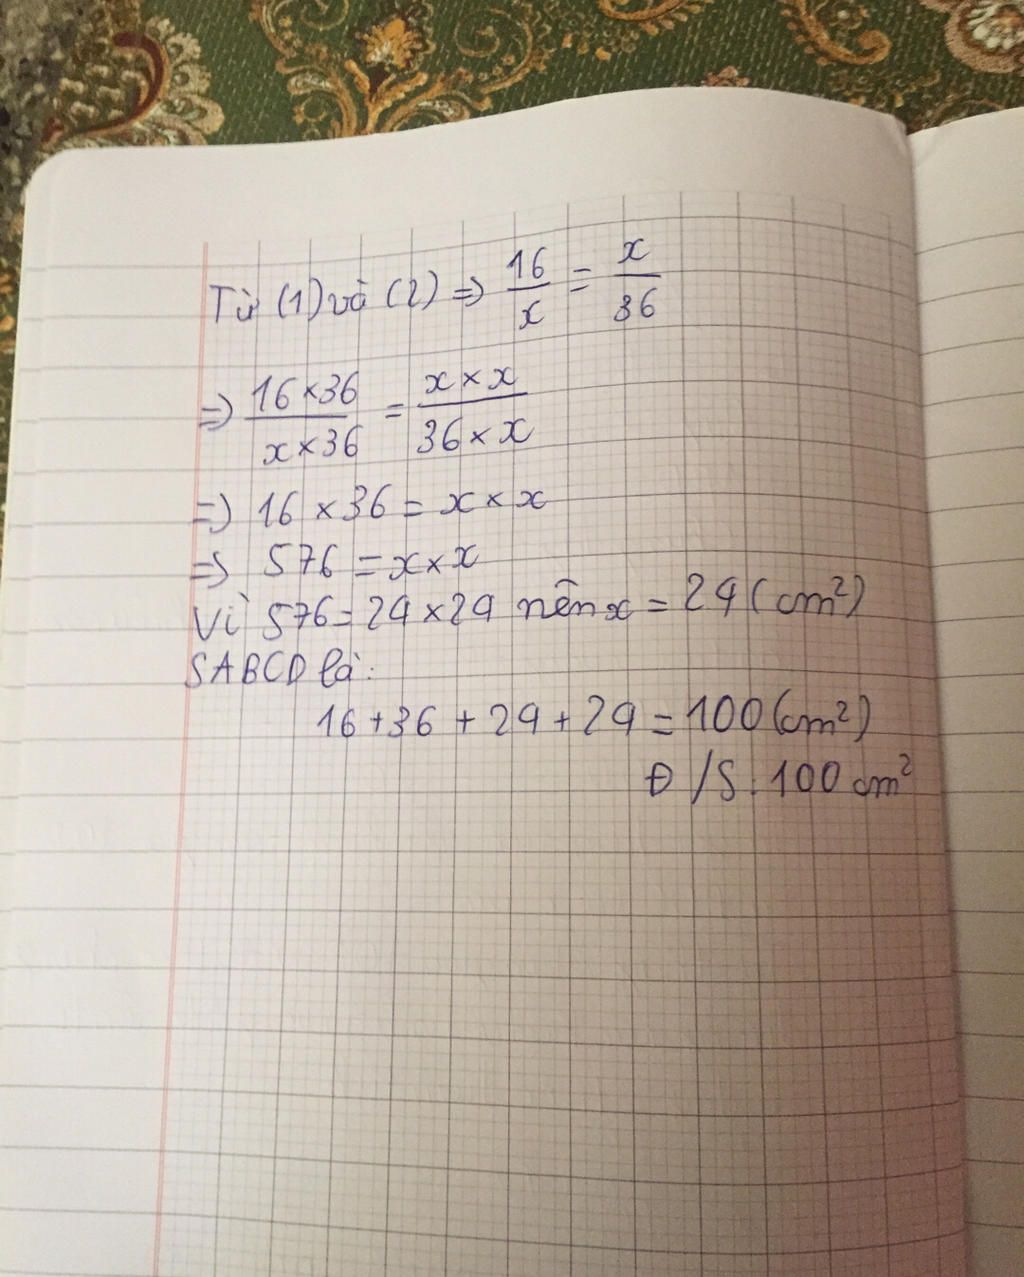 Từ (1) và (2) => 16/x = x/36
=> 16 × 36 / x × 36 = x × x / 36 × x
=> 16 × 36 = x × x
=> 576 = x × x
Vì 576 = 24 × 24 nên x = 24 (cm²)
SABCD là:
16 + 36 + 24 + 24 = 100 (cm²)
Đ/S: 100 cm²